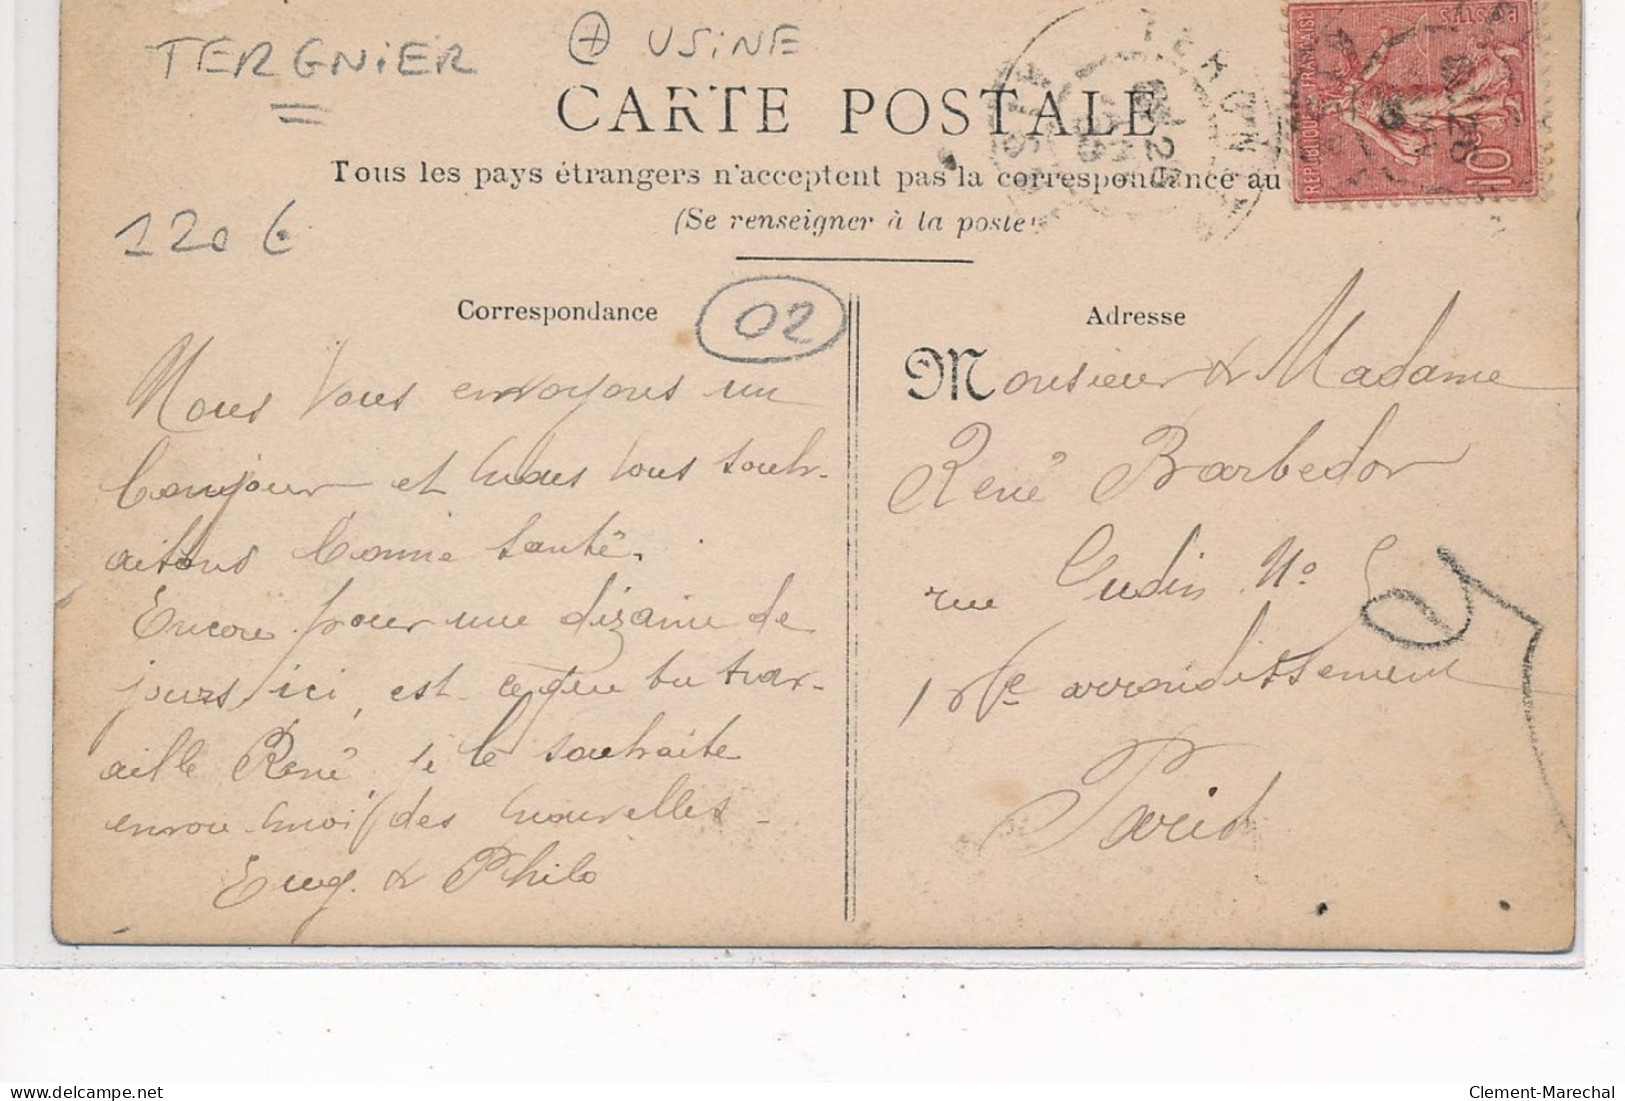 TERGNIER ⊕ USINE
CARTE POSTALE
Tous les pays étrangers n'acceptent pas la correspondance au
(Se renseigner à la poste)
REPUBLIQUE FRANÇAISE
POSTES
10
120 €
Correspondance
02
Nous Vous envoyons un
bonjour et nous vous souh-
aitons bonne santé.
Encore pour une dizaine de
jours ici, est ce que tu trav-
aille René je le souhaite
envoie moi des nouvelles
Eug. & Philo
Adresse
Monsieur & Madame
René Barbedor
rue Gudin No 5
16e arrondissement
Paris
www.delcampe.net
Clement-Marechal